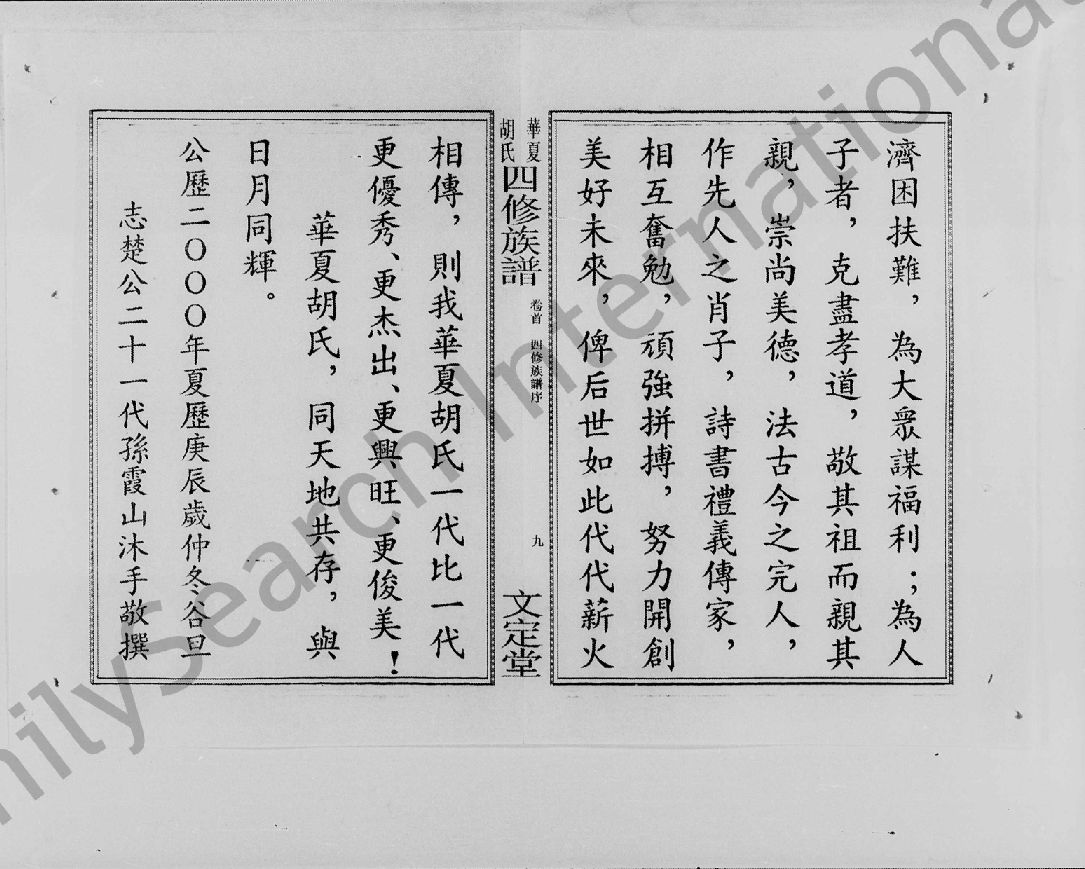 濟困扶難，為大衆謀福利；為人
子者，克盡孝道，敬其祖而親其
親，崇尚美德，法古今之完人，
作先人之肖子，詩書禮義傳家，
相互奮勉，頑強拼搏，努力開創
美好未來，俾后世如此代代薪火
華夏
胡氏
四修族譜
卷首
四修族譜序
九
文定堂
相傳，則我華夏胡氏一代比一代
更優秀、更杰出、更興旺、更俊美！
華夏胡氏，同天地共存，與
日月同輝。
公歷二〇〇〇年夏歷庚辰歲仲冬谷旦
志楚公二十一代孫霞山沐手敬撰
FamilySearch International